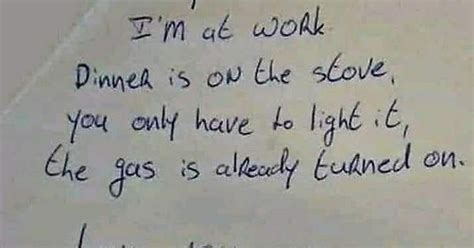 I'm at work
Dinner is on the stove,
you only have to light it,
the gas is already turned on.